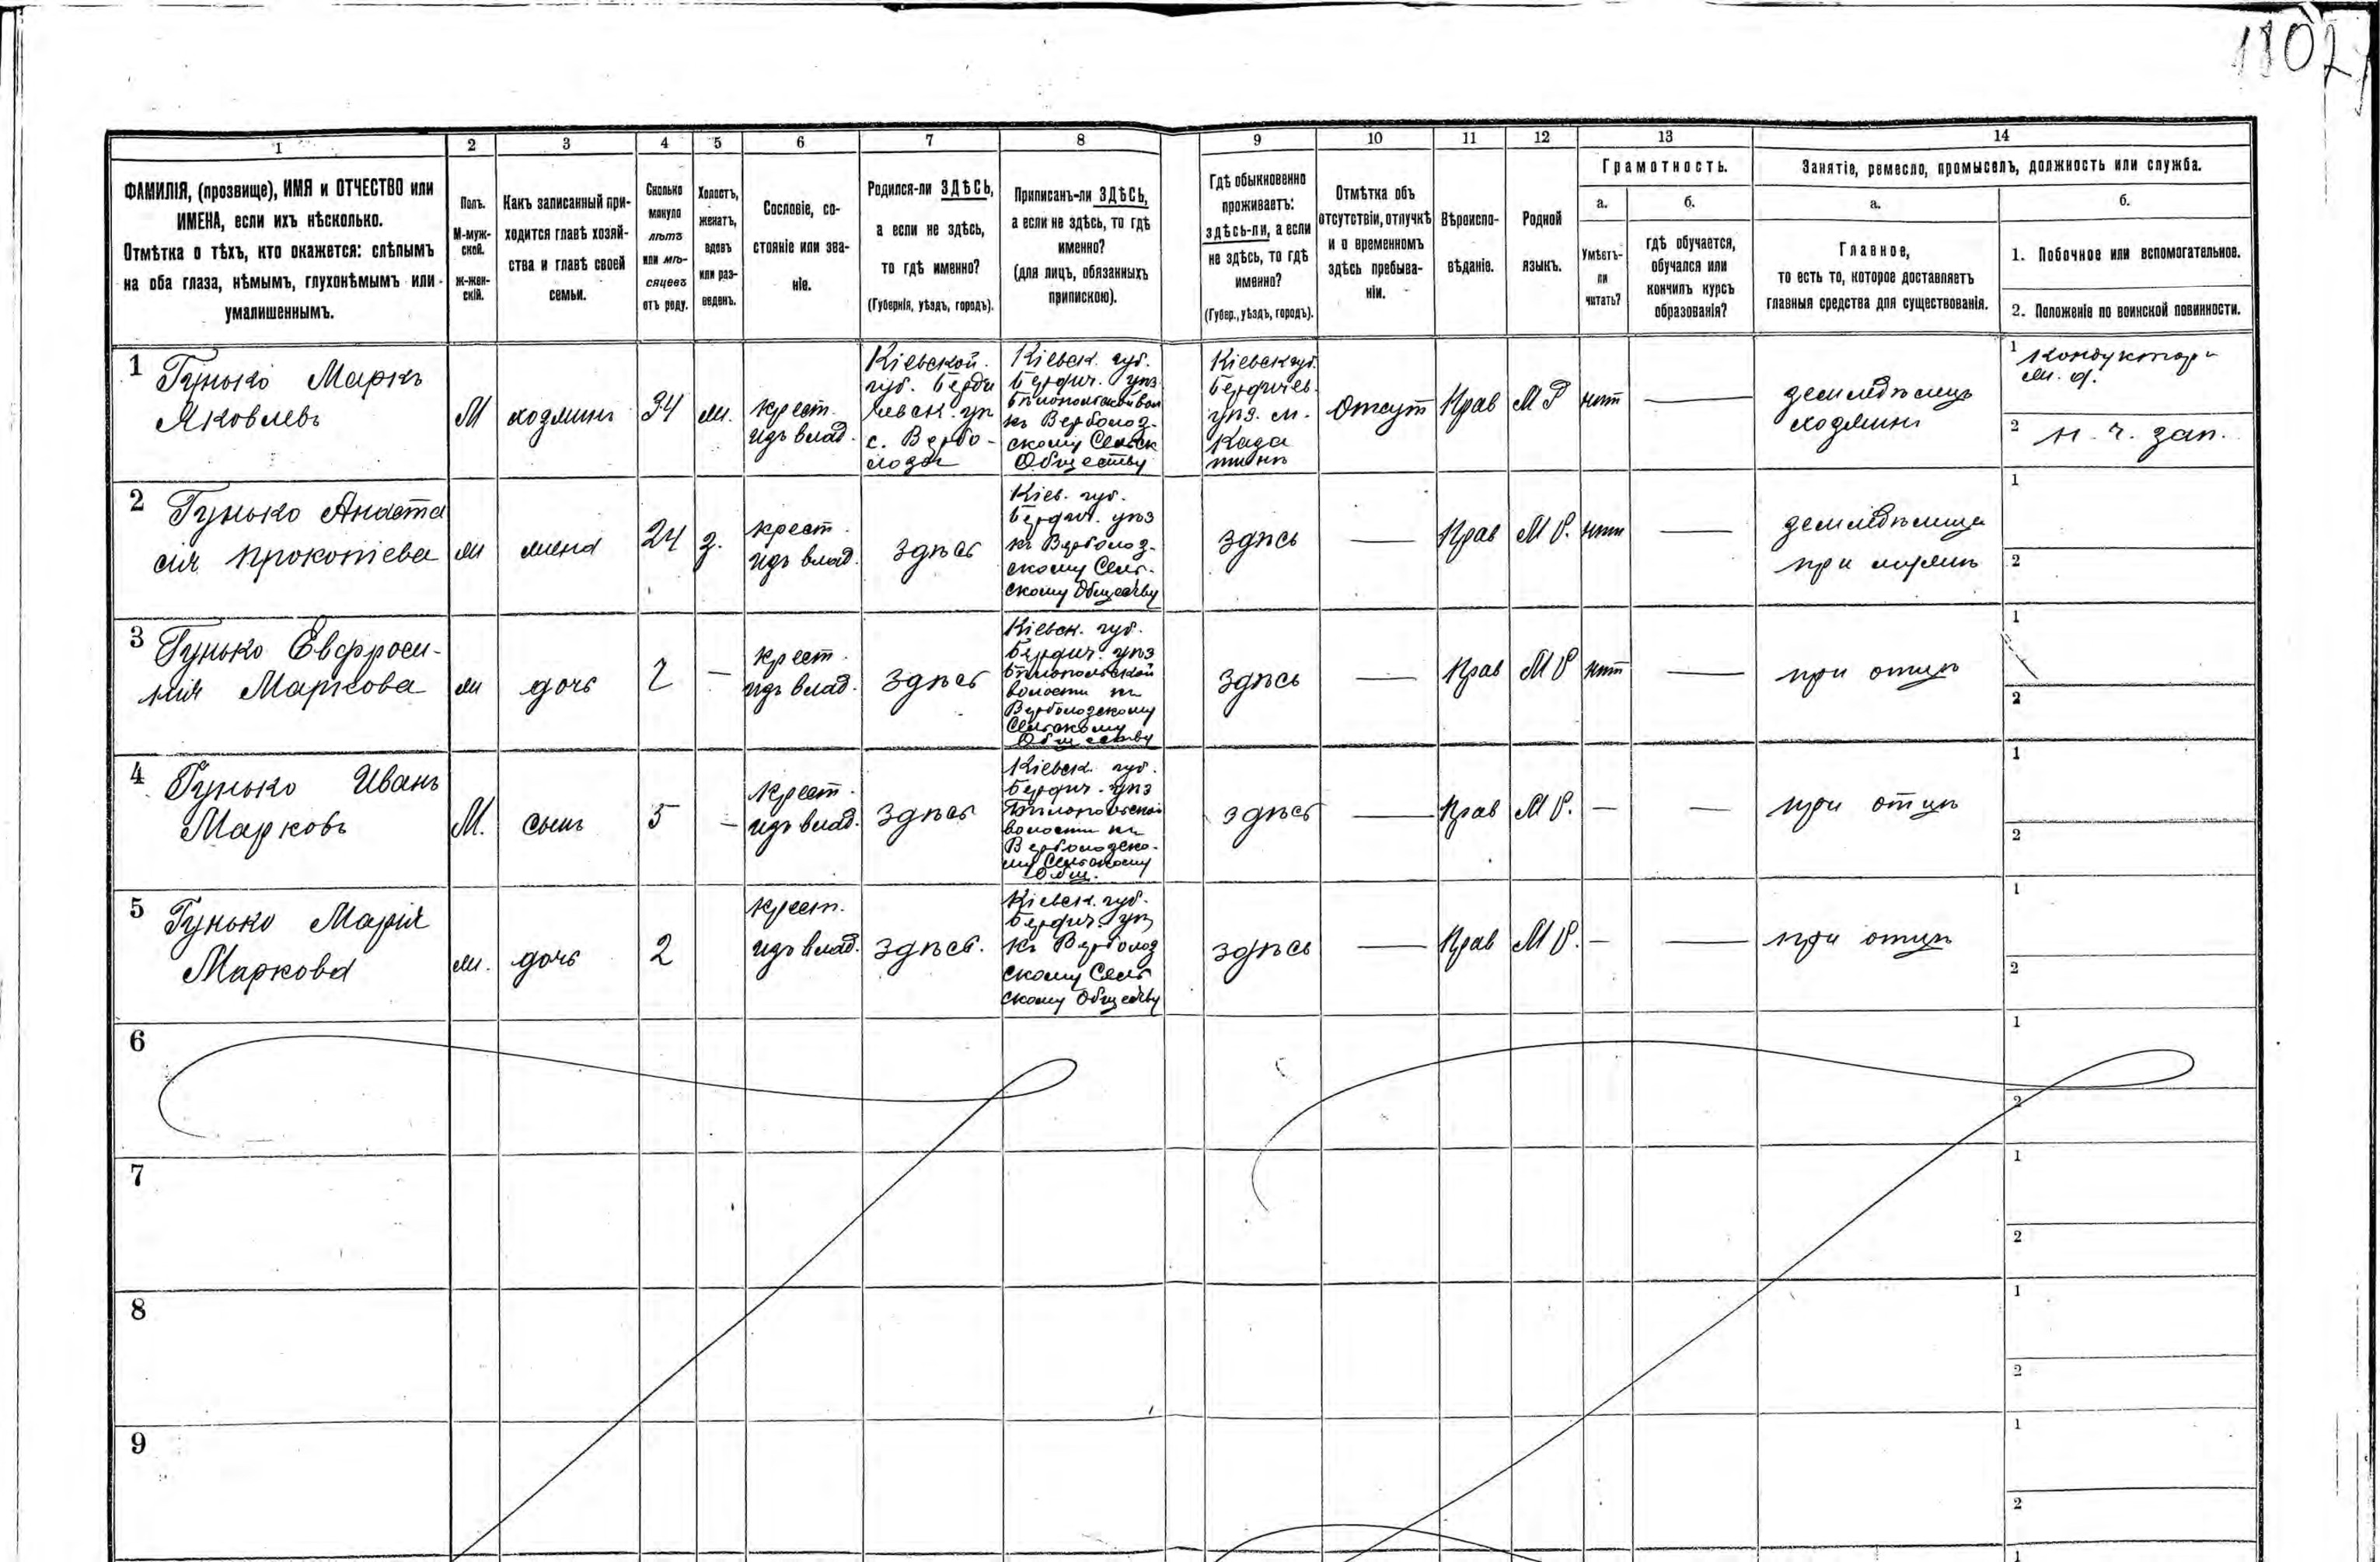 1 2 3 4 5 6 7 8 9 10 11 12 13 14
ФАМИЛІЯ, (прозвище), ИМЯ и ОТЧЕСТВО или
ИМЕНА, если ихъ нѣсколько.
Отмѣтка о тѣхъ, кто окажется: слѣпымъ
на оба глаза, нѣмымъ, глухонѣмымъ или
умалишеннымъ.
Полъ.
М-муж-
ской.
ж-жен-
скій.
Какъ записанный при-
ходится главѣ хозяй-
ства и главѣ своей
семьи.
Сколько
минуло
лѣтъ
или мѣ-
сяцевъ
отъ роду.
Холостъ,
женатъ,
вдовъ
или раз-
веденъ.
Сословіе, со-
стояніе или зва-
ніе.
Родился-ли ЗДѢСЬ,
а если не здѣсь,
то гдѣ именно?
(Губернія, уѣздъ, городъ).
Приписанъ-ли ЗДѢСЬ,
а если не здѣсь, то гдѣ
именно?
(для лицъ, обязанныхъ
припискою).
Гдѣ обыкновенно
проживаетъ:
здѣсь-ли, а если
не здѣсь, то гдѣ
именно?
(Губер., уѣздъ, городъ).
Отмѣтка объ
отсутствіи, отлучкѣ
и о временномъ
здѣсь пребыва-
ніи.
Вѣроиспо-
вѣданіе.
Родной
языкъ.
Грамотность.
а.
Умѣетъ-
ли
читать?
б.
гдѣ обучается,
обучался или
кончилъ курсъ
образованія?
Занятіе, ремесло, промыселъ, должность или служба.
а.
Главное,
то есть то, которое доставляетъ
главныя средства для существованія.
б.
1. Побочное или вспомогательное.
2. Положеніе по воинской повинности.
1 Гунько Маркъ
Яковлевъ
М
хозяинъ
34
ж.
крест.
изъ влад.
Кіевской
губ. Берди
чевск. уѣ
с. Вербо-
лоза
Кіевск. губ.
Бердич. уѣз
Бѣлопольской вол
къ Верболоз-
скому Сельск
Обществу
Кіевск губ.
Бердичев.
уѣз. м.
Каза
тинъ
Отсут
Прав
М Р
нѣт
земледѣлецъ
хозяинъ
1 Кондукторъ
ж. д.
2 н. ч. зап.
2 Гунько Анаста
сія Прокопіева
ж
жена
24
з.
крест.
изъ влад.
здѣсь
Кіев. губ.
Бердич. уѣз
къ Верболоз-
скому Сель-
скому Обществу
здѣсь
Прав
М Р.
нѣт
земледѣлица
при мужѣ
1
2
3 Гунько Евфроси-
нія Маркова
ж
дочь
7
крест.
изъ влад.
здѣсь
Кіевск. губ.
Бердич. уѣз
Бѣлопольской
волости къ
Верболозскому
Сельскому
Обществу
здѣсь
Прав
М Р
нѣт
при отцѣ
1
2
4 Гунько Иванъ
Марковъ
М.
сынъ
5
крест.
изъ влад.
здѣсь
Кіевск. губ.
Бердич. уѣз
Бѣлопольской
волости къ
Верболозско-
му Сельскому
Общ.
здѣсь
Прав
М Р.
при отцѣ
1
2
5 Гунько Марія
Маркова
ж.
дочь
2
крест.
изъ влад.
здѣсь.
Кіевск. губ.
Бердич. уѣз
къ Верболоз
скому Сель
скому Обществу
здѣсь
Прав
М Р.
при отцѣ
1
2
6
1
2
7
1
2
8
1
2
9
1
2
1